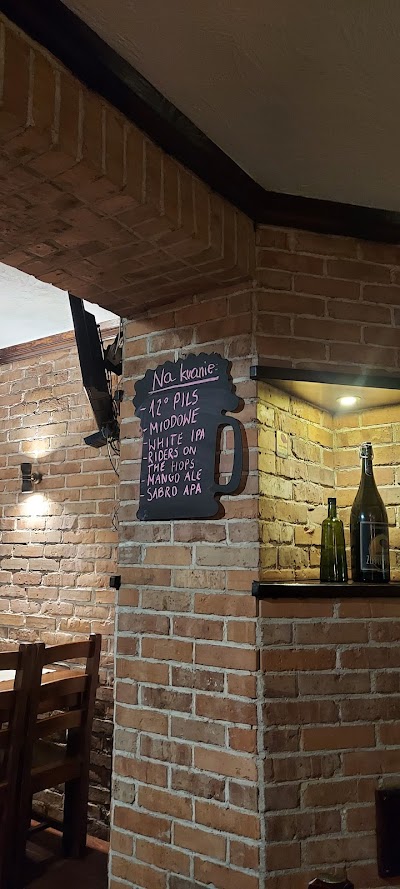 Na kranie:
- 12° PILS
- MIODOWE
- WHITE IPA
- RIDERS ON
THE HOPS
- MANGO ALE
- SABRO APA